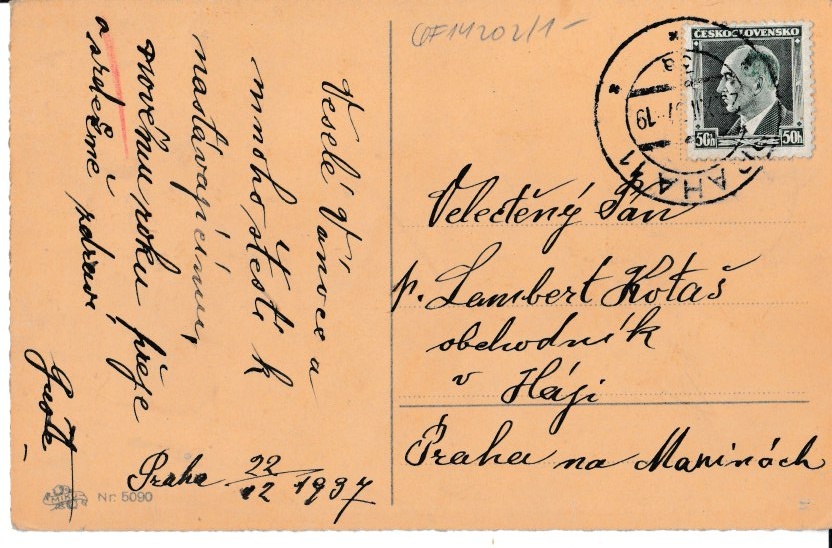 Veselé Vánoce a
mnoho štěstí k
nastávajícímu
novému roku přeje
a srdečně zdraví
Praha 22/12 1937
Nr. 5090
GF14202/1-
ČESKOSLOVENSKO
50h 50h
PRAHA 11
Velectěný Pán
p. Lambert Kotaš
obchodník
v Háji
Praha na Maninách